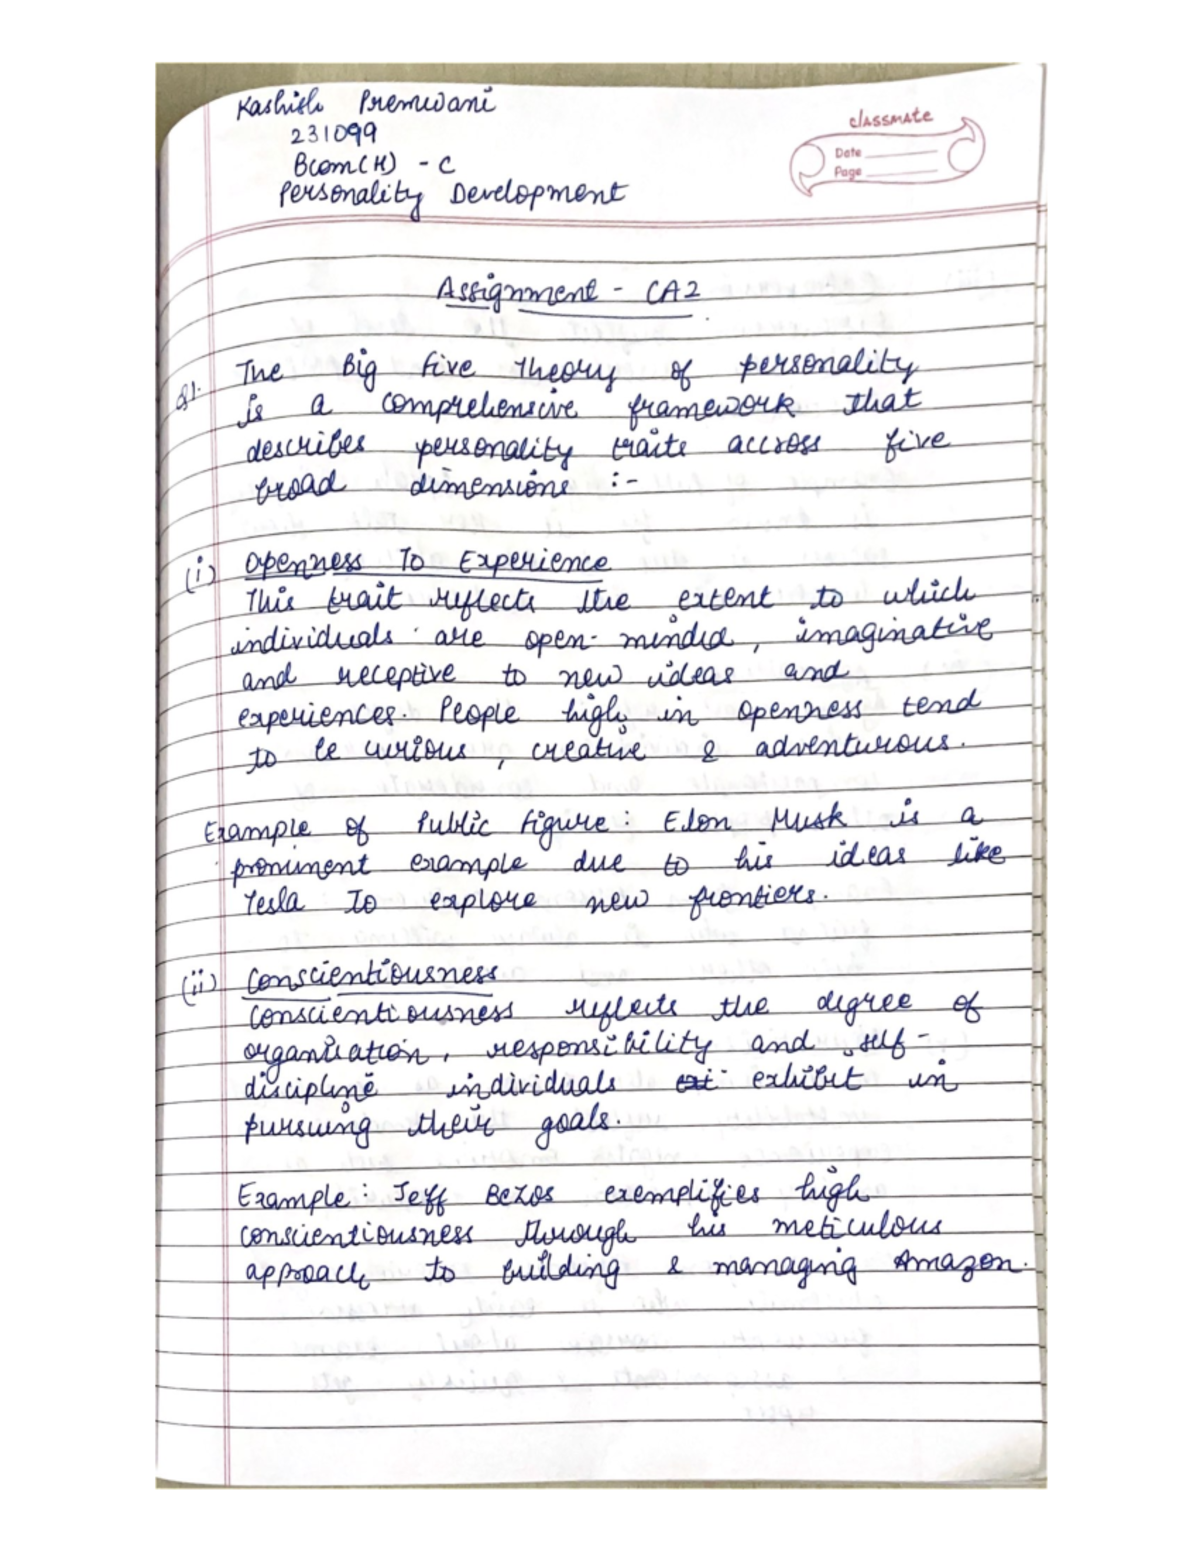 Kashish Premwani
231099
Bcom(H) - C
Personality Development
classmate
Date
Page
Assignment - CA2
Q1. The Big five theory of personality
is a comprehensive framework that
describes personality traits accross five
broad dimensions :-
(i) Openness To Experience
This trait reflects the extent to which
individuals are open-minded, imaginative
and receptive to new ideas and
experiences. People high in openness tend
to be curious, creative & adventurous.
Example of Public Figure: Elon Musk is a
prominent example due to his ideas like
Tesla To explore new frontiers.
(ii) Conscientiousness
Conscientiousness reflects the degree of
organisation, responsibility and self-
discipline individuals exhibit in
pursuing their goals.
Example: Jeff Bezos exemplifies high
conscientiousness through his meticulous
approach to building & managing Amazon.